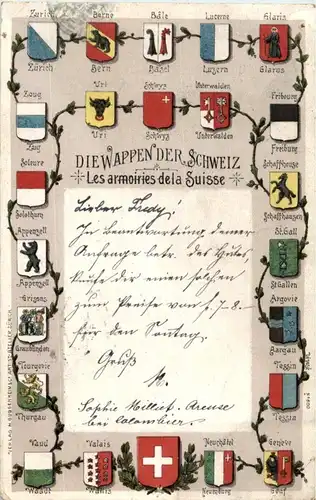 Zurich Berne Bâle Lucerne Glaris
Zürich Bern Basel Luzern Glarus
Zoug Uri Schwyz Unterwalden Fribourg
Zug Uri Schwyz Unterwalden Freiburg
DIE WAPPEN DER SCHWEIZ
Les armoiries de la Suisse
Soleure Schaffhouse
Solothurn Schaffhausen
Appenzell St.Gall
Appenzell St.Gallen
Grisons Argovie
Graubünden Aargau
Tourgovie Tessin
Thurgau Tessin
Vaud Valais Neuchâtel Genève
Waadt Wallis Neuenburg Genf
Lieber Fredy!
In Beantwortung deiner
Anfrage betr. des
dir einen solchen
zum Preise von 6.7-8.-
für den Sonntag.
Gruß
M.
Sophie Milliet. Areuse
bei Colombier.